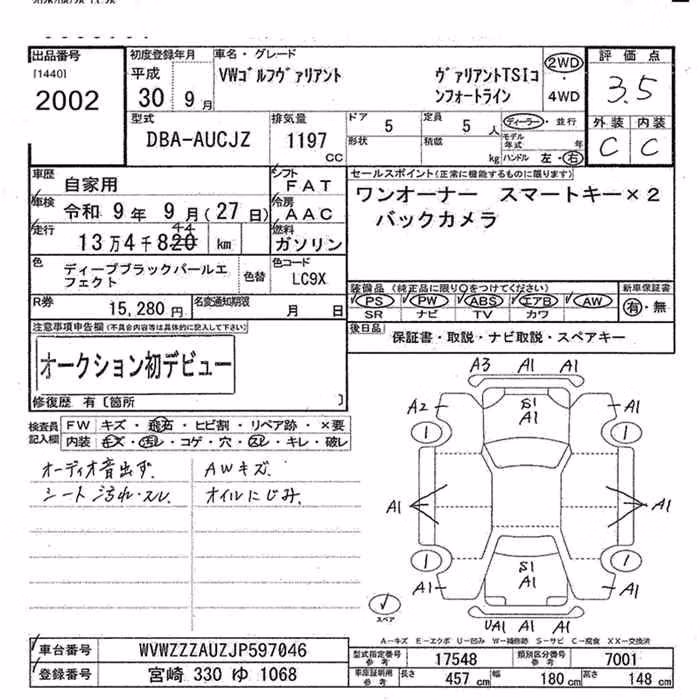 出品番号
[1440]
2002
初度登録年月
平成
30 9 月
車名・グレード
VWゴルフヴァリアント
ヴァリアントTSIコ
ンフォートライン
2WD
4WD
評価点
3.5
外装 内装
C C
型式
DBA-AUCJZ
排気量
1197
CC
ドア
5
定員
5 人
形状
積載
kg
ディーラー・並行
モデル年式 年
ハンドル 左・右
車歴
自家用
シフト
FAT
車検
令和 9 年 9 月(27 日)
冷房
AAC
走行
44
13 万 4 千 820 km
燃料
ガソリン
色
ディープブラックパールエ
フェクト
色替
色コード
LC9X
R券
15,280 円
名変通知期限
月 日
セールスポイント(正常に機能するものに限ります)
ワンオーナー スマートキー×2
バックカメラ
装備品(純正品に限り○をつけてください)
PS PW ABS エアB AW
SR ナビ TV カワ
新車保証書
有・無
後日品
保証書・取説・ナビ取説・スペアキー
注意事項申告欄(不具合内容等は具体的に記入して下さい)
オークション初デビュー
修復歴 有〔箇所 〕
検査員
記入欄
FW キズ・飛石・ヒビ割・リペア跡・×要
内装 キズ・汚レ・コゲ・穴・スレ・キレ・破レ
オーディオ音出ず.
シート汚れ・スレ.
AWキズ.
オイルにじみ.
A3 A1 A1
A2 S1 A1 A1
1 1
A1 A1
1 1
A1 S1 A1 A1
UA1 A1 A1
スペア
A-キズ E-エクボ U-凹み W-補修跡 S-サビ C-腐食 XX-交換済
車台番号
WVWZZZAUZJP597046
登録番号
宮崎 330 ゆ 1068
型式指定番号
参考
17548
類別区分番号
参考
7001
車庫証明用
参考
長さ 457 cm 幅 180 cm 高さ 148 cm